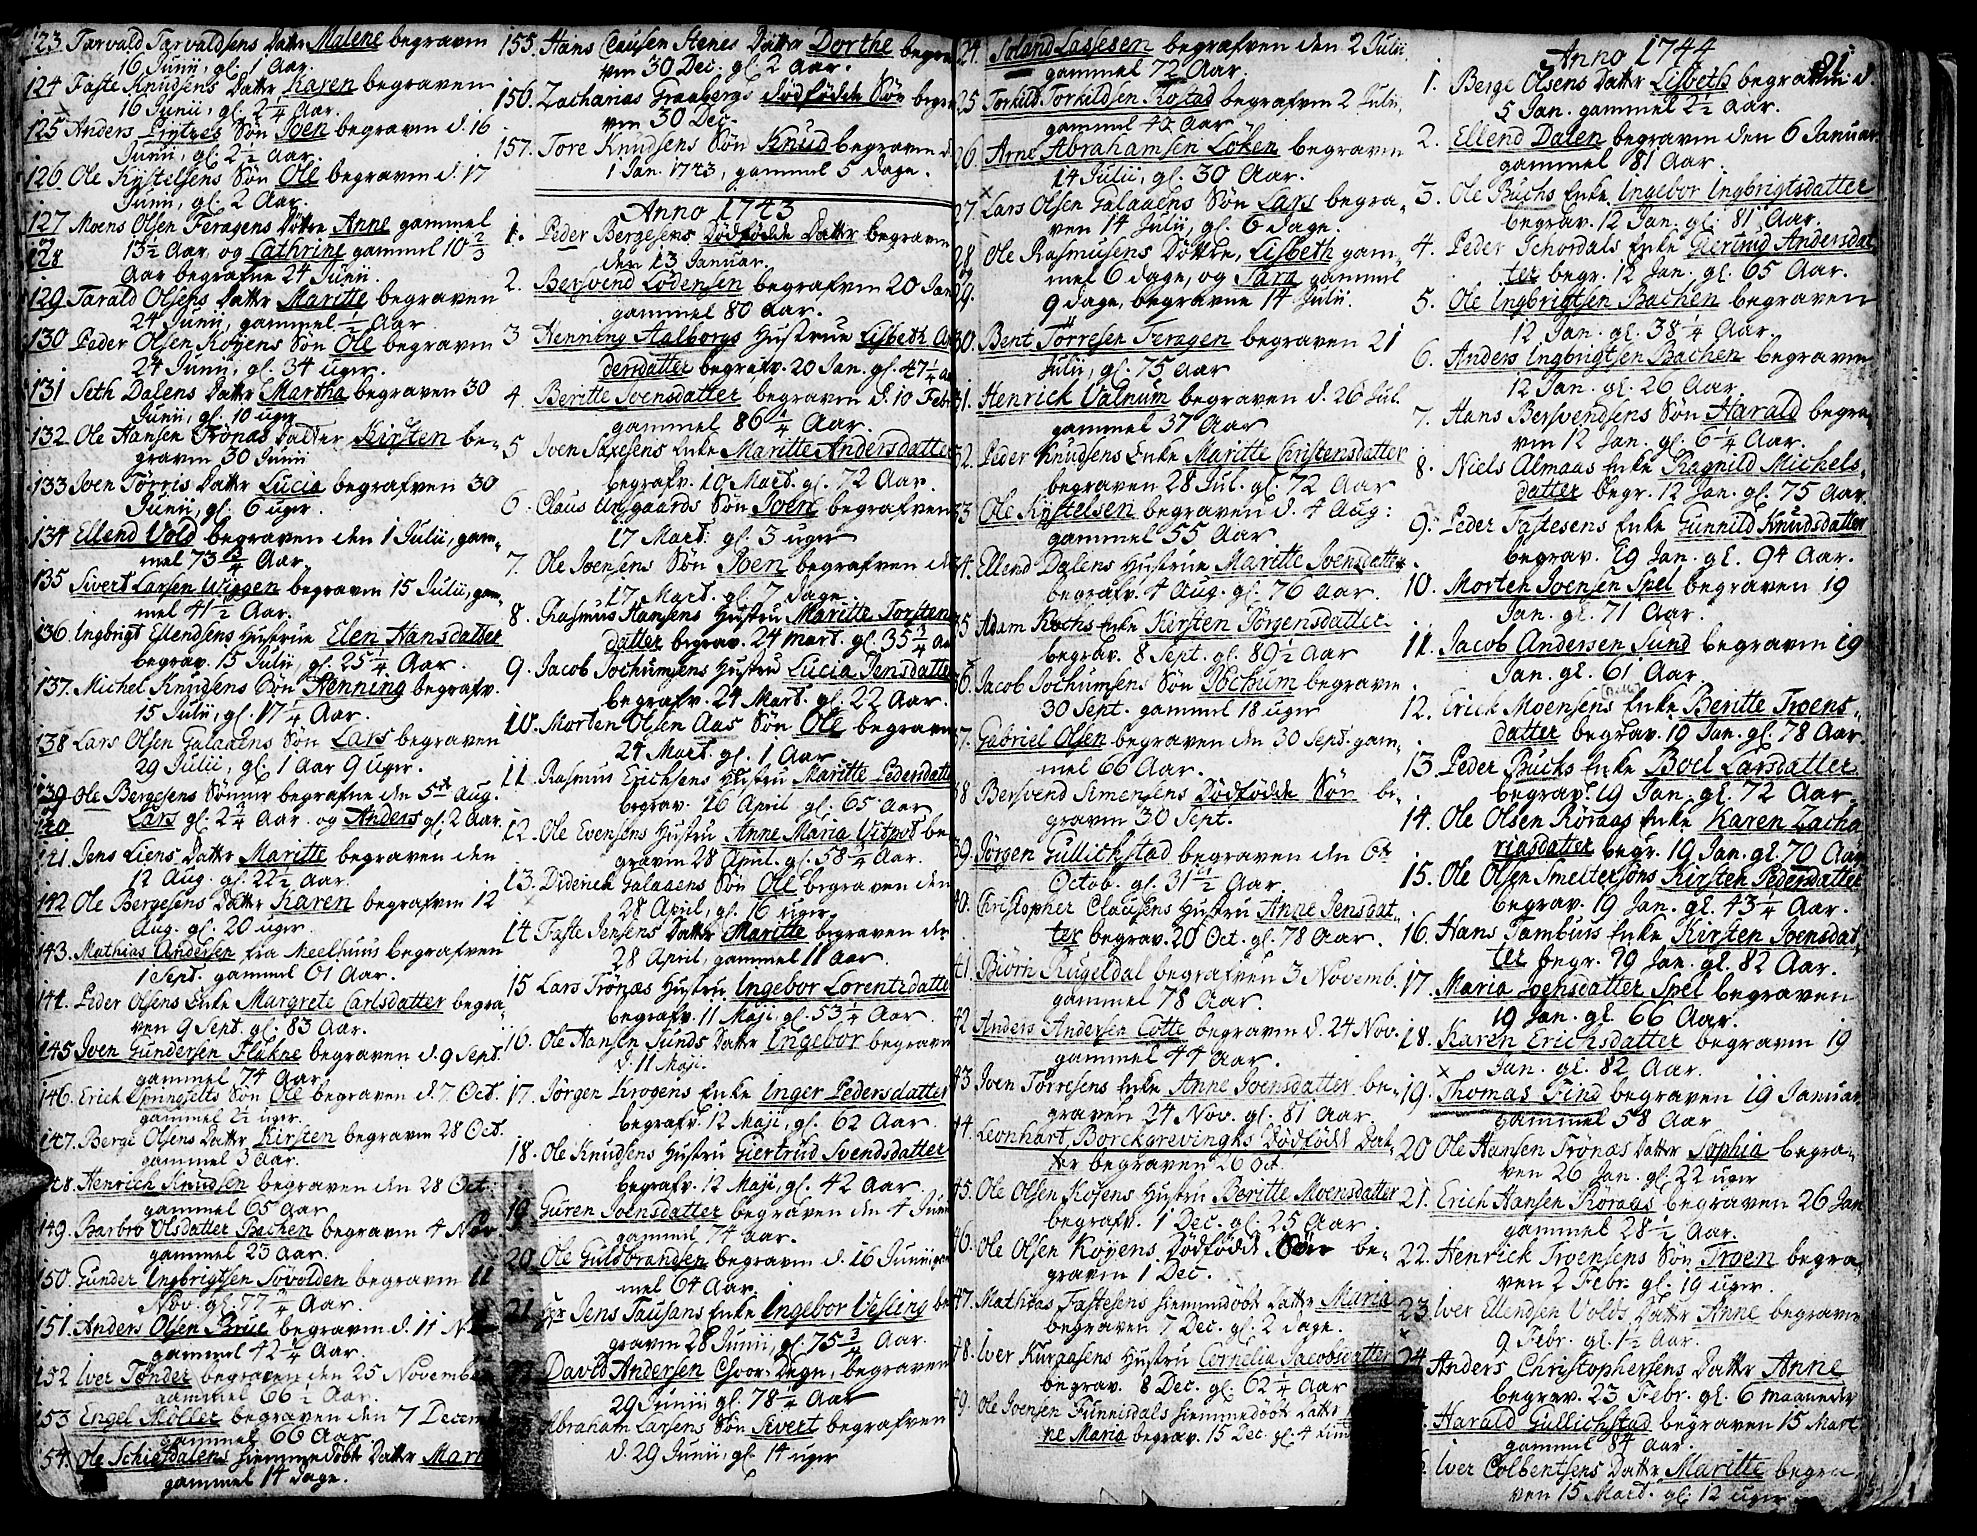 123. Tarvald Tarvaldsens Datter Malene begraven
16 Junii, gl. 1 Aar.
124 Faste Knudsens Datter Karen begraven
16 Junii, gl. 2 1/4 Aar.
125 Anders Pryttes Søn Joen begraven d. 16
Junii, gl. 2 1/2 Aar.
126. Ole Kystelsens Søn Ole begraven d. 17
Junii, gl. 2 Aar.
127 Moens Olsen Feragens Døttre Anne gammel
og 13 1/2 Aar og Cathrine gammel 10 2/3
128 Aar begrafne 24 Junii.
129 Tarald Olsens Datter Maritte begraven
24 Junii, gammel 1/2 Aar
130 Peder Olsen Koyens Søn Ole begraven
24 Junii, gl. 34 uger.
131 Seth Dalens Datter Martha begraven 30
Junii, gl. 10 uger
132. Ole Hansen Trönas Datter Kirsten be-
graven 30 Junii
133 Joen Törris Datter Lucia begrafven 30
Junii, gl. 6 uger.
134 Ellend Vold begraven den 1 Julii, gam-
mel 73 3/4 Aar.
135 Sivert Larsen Wiggen begraven 15 Julii, gam-
mel 41 1/2 Aar.
136. Ingbrigt Ellendsens Hustrue Elen Hansdatter
begrav. 15 Julii, gl. 25 1/4 Aar.
137. Michel Knudsens Søn Henning begrafv.
15 Julii, gl. 17 1/4 Aar.
138 Lars Olsen Galaaens Søn Lars begraven
29 Julii, gl. 1 Aar 9 uger.
139 Ole Bergesens Sönner begrafne den 5te Aug.
og 140 Lars gl. 2 3/4 Aar. og Anders gl. 2 Aar.
141. Jens Liens Datter Maritte begraven den
12 Aug. gl. 22 1/2 Aar.
142 Ole Bergesens Datter Karen begrafven 12
Aug. gl. 20 uger.
143. Mathias Andersen fra Meelhuus begrafven
1 Sept. gammel 61 Aar.
144. Peder Olsens Enke Margrete Carlsdatter begra-
ven 9 Sept. gl. 83 Aar.
145 Joen Gundersen Flakne begraven d. 9 Sept.
gammel 74 Aar.
146. Erick Søn Ole begraven d. 7. Oct.
gammel 2 1/2 uger.
147. Berge Olsens Datter Kirsten begraven 28 Oct.
gammel 3 Aar.
148. Henrich Knudsen begraven den 28 Oct.
gammel 65 Aar
149. Barbro Olsdatter Bachen begraven 4 Nov.
gammel 23 Aar.
150. Gunder Ingbrigtsen Sövolden begraven 11
Nov. gl. 77 3/4 Aar.
151. Anders Olsen Brue begraven d. 11 Nov
gammel 42 1/4 Aar.
152 Iver Tønder begraven den 25 November
gammel 66 1/2 Aar.
153 Engel Möller begraven den 7 Decem
gammel 66 Aar.
154. Ole Schiefdalens hiemmedöbt Datter Mari
gammel 14 dage.
155. Hans Clausen Stenes Datter Dorthe begra
ven 30 Dec. gl. 2 Aar.
156. Zacharias Graabergs dödfødde Søn begra
ven 30 Dec.
157. Tore Knudsens Søn Knud begraven d
1 Jan. 1743, gammel 5 dage.
Anno 1743
1. Peder Bergesens Dödfödde Datter begraven
den 13 Januar.
2. Bersvend Lodensen begrafven 20 Jan
gammel 80 Aar.
3 Henning Aalborgs Hustrue Lisbeth An
dersdatter begrafv. 20 Jan. gl. 47 1/4 aa
4 Beritte Joensdatter begraven d. 10 Febr
gammel 86 1/4 Aar.
5 Joen Saxesens Enke Maritte Andersdatter
begrafv. 10 Mart. gl. 72 Aar.
6. Claus Aasgaards Søn Joen begrafven
17 Mart. gl. 3 uger
7. Ole Joensens Søn Joen begrafven d
17 Mart. gl. 7 dage.
8. Rasmus Hansens Hustru Maritte Torsten
datter begrav. 24 Mart. gl. 35 1/4 Aa
9. Jacob Jochumsens Hustru Lucia Jensdatte
begrafv. 24 Mart. gl. 22 Aar.
10. Morten Olsen Aas Søn Ole begraven
24 Mart. gl. 1 Aar
11. Rasmus Erichsens Hustru Maritte Pedersdatte
begrav. 16 April gl. 65 Aar
12. Ole Evensens Hustru Anne Maria Vitrot be
graven 28 April. gl. 58 3/4 Aar.
13. Diderich Galaaens Søn Ole begraven den
28 April, gl. 16 uger
14 Faste Jensens Datter Maritte begraven den
28 April, gammel 11 aar.
15 Lars Trönæs Hustru Ingebor Lorentzdatte
begrafv. 11 Maji. gl. 53 1/4 Aar.
16. Ole Hansen Sunds Datter Ingebor begraven
d. 11 Maji.
17. Jörgen Krogens Enke Inger Pedersdatter
begrafv. 12 Maji, gl. 62 Aar.
18. Ole Knudsens Hustru Giertrud Svendsdatter
begrafv. 12 Maji, gl. 42 Aar
19. Guren Joensdatter begraven den 4 Junii
gammel 74 aar.
20. Ole Guldbrandsen begraven d. 16 Junii gam
mel 64 Aar.
21. Hr Jens Tausans Enke Ingebor Vesling be
graven 28 Junii, gl. 75 3/4 Aar.
David Andersen Choor-Degn, begraven
29 Junii gl. 78 1/4 Aar
Abraham Larsens Søn Sivert begrafven
d. 29 Junii, gl. 14 uger
24. Lassesen begrafven den 2 Julii
gammel 72 Aar.
25 Torkild Torkildsen Rostad begrafven 2 Julii,
gammel 40 Aar
26. Arne Abrahamsen Löken begraven
14 Julii, gl. 30 Aar.
27. Lars Olsen Galaaens Søn Lars begra-
ven 14 Julii, gl. 6 dage.
28 Ole Rasmusens Döttre, Lisbeth gam-
og mel 6 dage, og Tara gammel
29. 9 dage, begravne 14 Julii.
30. Bent Törresen Feragen begraven 21
Julii, gl. 75 Aar
31. Henrick Valnum begraven d. 26 Jul.
gammel 37 Aar
32. Peder Knudsens Enke Maritte Christensdatter
begraven 28 Jul. gl. 72 Aar
33 Ole Kystelsen begraven d. 4 Aug:
gammel 55 Aar.
34. Ellend Dalens Hustrue Maritte Joensdatter
begrafv. 4 Aug. gl. 76 Aar.
35 Adam Kochs Enke Kirsten Jörgensdatter
begrav. 8 Sept. gl. 89 1/2 Aar
36. Jacob Jochumsens Søn Jochum begraven
30 Sept. gammel 18 uger
37. Gabriel Olsen begraven den 30 Sept. gam-
mel 66 Aar.
38 Bersvend Simensens Dödfödde Søn be-
graven 30 Sept.
39. Jörgen Gullichstad begraven den 6te
Octob. gl. 31 1/2 Aar.
40. Christopher Clausens Hustru Anne Jensdat-
ter begrav. 20 Oct. gl. 78 Aar.
41. Biörn Rugeldal begrafven 3 Novemb.
gammel 78 Aar.
42 Anders Andersen Cotte begraven d. 24 Nov.
gammel 44 Aar.
43. Joen Törresens Enke Anne Joensdatter be-
graven 24 Nov. gl. 81 Aar.
44. Leonhart Borckgrevingks Dödfödt Dat-
ter begraven 26 Oct.
45. Ole Olsen Kojens Hustru Beritte Moensdatter
begrafv. 1 Dec. gl. 25 Aar.
46. Ole Olsen Koyens Dödfödt Søn be-
graven 1 Dec.
47. Mathias Fastesens hiemmedöbt Datter Maria
begraven 7 Dec. gl. 2 dage.
48. Iver Kuraasens Hustru Cornelia Jacobsdatter
begrav. 8 Dec. gl. 62 1/4 Aar
49. Ole Joensen Funnisdals hiemmedöbt Datter
ne Maria begrav. 15 Dec. gl. 4
Anno 1744
81
1. Berge Olsens Datter Lisbeth begraven d
5 Jan. gammel 2 1/2 Aar.
2. Ellend Dalen begraven den 6 Januar
gammel 81 Aar.
3. Ole Buchs Enke Ingebor Ingbrigtsdatter
begrav. 12 Jan. gl. 81 Aar.
4. Peder Schordals Enke Giertrud Andersdat
ter begr. 12 Jan. gl. 65 Aar.
5. Ole Ingbrigtsen Bachen begraven
12 Jan. gl. 38 1/4 Aar.
6. Anders Ingbrigtsen Bachen begraven
12 Jan. gl. 26 Aar.
7. Hans Bersvendsens Søn Harald begra-
ven 12 Jan. gl. 6 1/4 Aar.
8. Niels Almaas Enke Ragnild Michels-
datter begr. 12 Jan. gl. 75 Aar
9. Peder Fastesens Enke Gunnild Knudsdatter
begrav. 19 Jan. gl. 94 Aar.
10. Morten Joensen Spel begraven 19
Jan. gl. 71 Aar.
11. Jacob Andersen Sund begraven 19
Jan. gl. 61 Aar.
12. Erick Moensens Enke Beritte Troens-
datter begrav. 19 Jan. gl. 78 Aar.
13. Peder Buchs Enke Boel Larsdatter
begrav. 19 Jan. gl. 72 Aar.
14. Ole Olsen Röraas Enke Karen Zacha
riasdatter begr. 19 Jan. gl. 70 Aar
15. Ole Olsen Smeltersöns Kirsten Pedersdatter
begrav. 19 Jan. gl. 43 1/4 Aar.
16. Hans Tamburs Enke Kirsten Joensdat
ter begr. 19 Jan. gl. 82 Aar.
17. Maria Joensdatter Spel begraven
19 Jan. gl. 66 Aar.
18. Karen Erichsdatter begraven 19
Jan. gl. 82 Aar.
19. Thomas Find begraven 19 Januar
gammel 58 Aar
20 Ole Hansen Trönæs Datter Sophia begra-
ven 26 Jan. gl. 22 uger
21. Erich Hansen Röraas begraven 26 Jan
gammel 28 1/2 Aar.
22. Henrick Troensens Søn Troen begra-
ven 2 Febr. gl. 19 uger.
23. Iver Ellendsen Volds Datter Anne begraven
9 Febr. gl. 1 1/2 Aar.
24. Anders Christophersens Datter Anne
begrav. 23 Febr. gl. 6 maaneder
Harald Gullichstad begraven 15 Mart
gammel 84 Aar.
Iver Colbentsens Datter Maritte begra
ven 15 Mart. gl. 12 uger